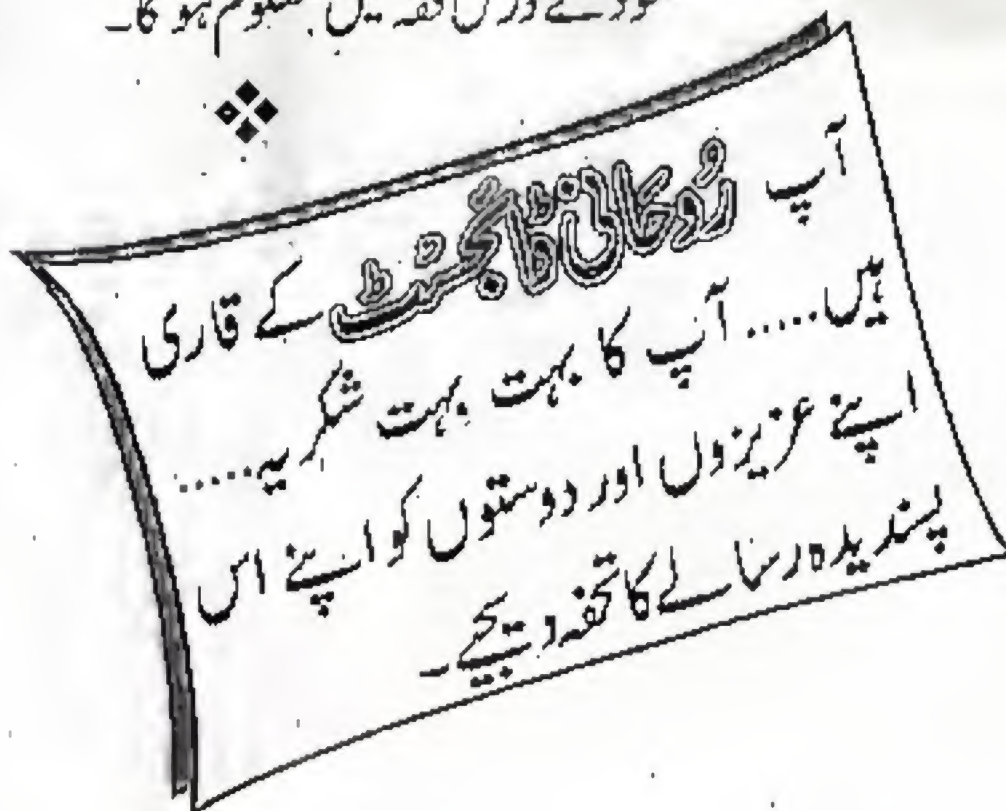 میں معلوم ہو گا۔
آپ رُوحانی ڈائجسٹ کے قاری
ہیں..... آپ کا بہت بہت شکریہ.....
اپنے عزیزوں اور دوستوں کو اپنے اس
پسندیدہ رسالے کا تحفہ دیجیے۔